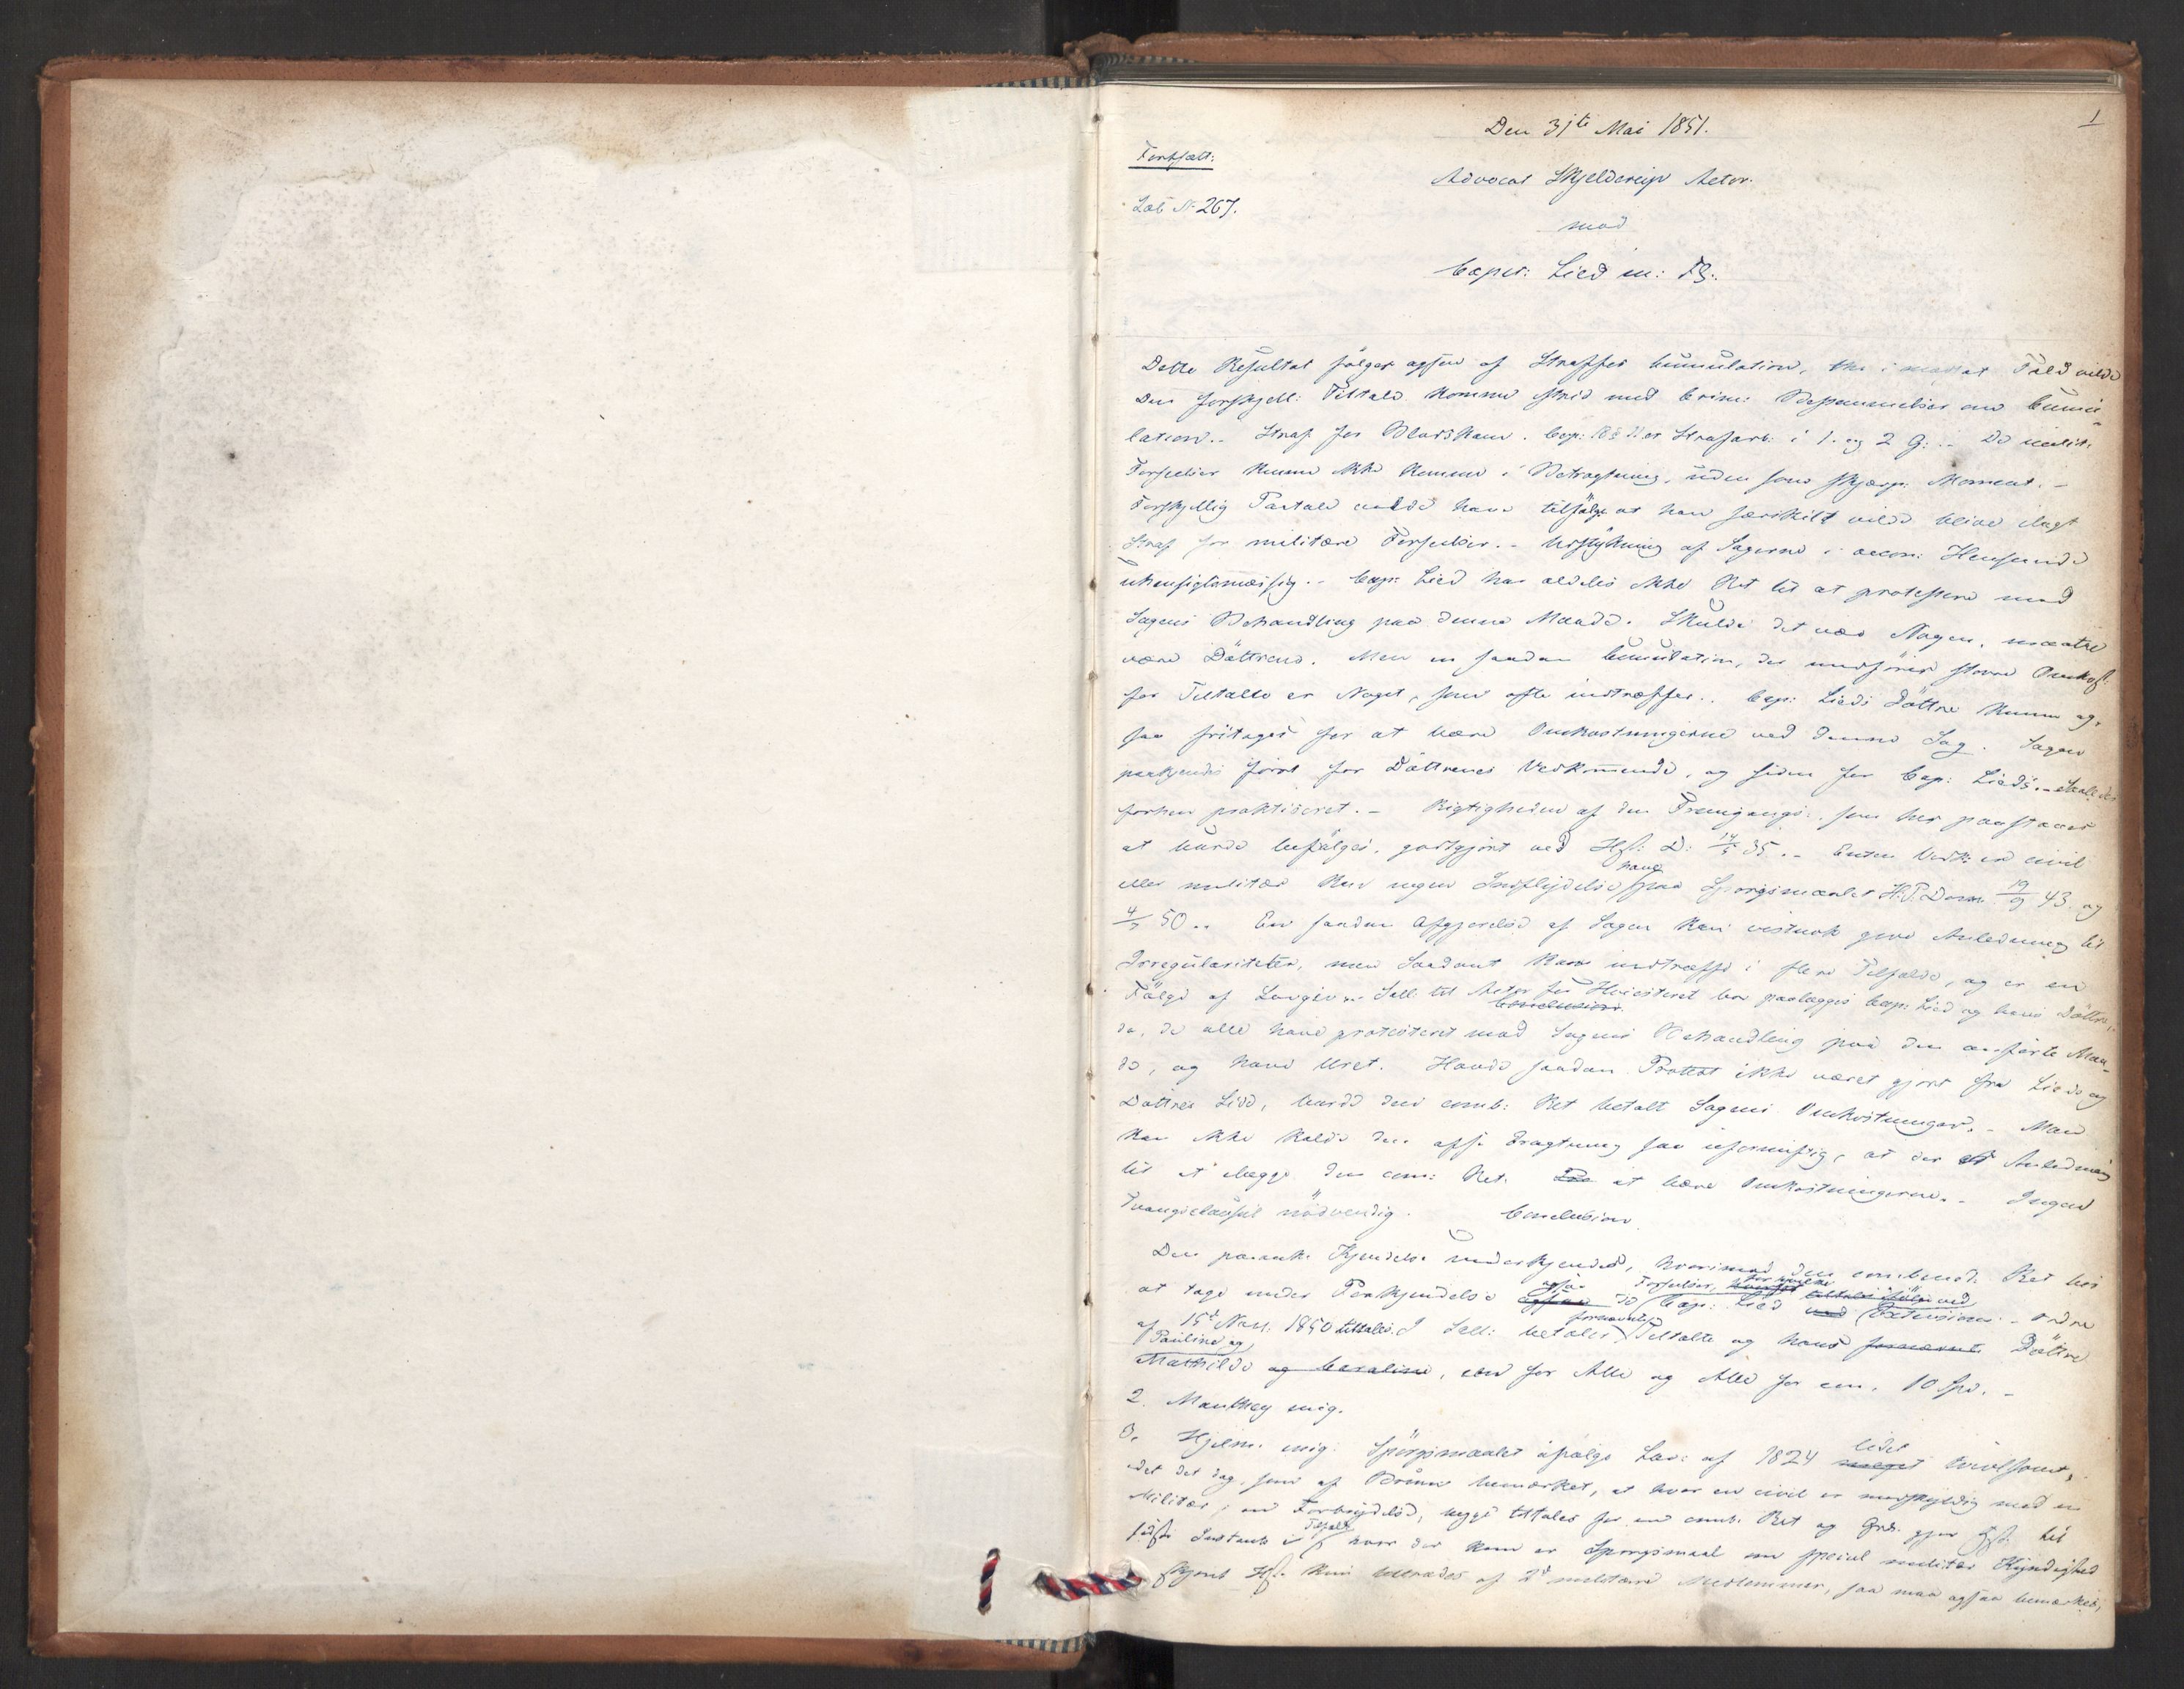 1
Den 31te Mai 1851.
Fortsatt:
Advocat Skjelderup Actor.
Lab N. 267.
mod
Capt: Lied m: Fl:.
Dette Resultat følger ogsaa af Straffes Cumulation, thi i modsat Fald vilde
den forskjell: Tiltale komme strid med Crim: Bestemmelser om Cumu-
lation. - Straf for Blodskam. Cap: 18 § 11 er Strafarb: i 1. og 2 G: - De milit.
Forseelser kunne ikke komme i Betragtning, uden som skjærp: Moment. -
Forskjellig Paatale vilde have tilfølge at han særskilt vilde blive ilagt
Straf for militære Forseelser. - Udstykning af Sagerne i Henseende
uhensigtsmæssig. - Cap: Lied har aldeles ikke Ret til at protestere mod
Sagens Behandling paa denne Maade. Skulde det være Nogen, maatte
være Døttrene. Men en saadan Cumulation, der medfører større Omkost:
for Tiltalte er Noget, som ofte indtræffer. Cap: Lieds Døttre kunne og-
saa fritages for at bære Omkostningerne ved denne Sag. Sagen
paakjendes først for Døttrenes Vedkommende, og siden for Cap: Lieds. - saaledes
forhen praktiseret. - Rigtigheden af den Fremgangs: som her paastaaes
at burde befølges, godtgjort ved Hst: D: 14/5 35. - Enten Vedk: er civil
eller militær kan ingen Indflydelse have paa Spørgsmaalet H.R. Dom 19/9 43. og
4/7 50. En saadan Afgjørelse af Sagen kan vistnok give Anledning til
Irregulariteter, men Saadant kan indtræffe i flere Tilfælde, og er en
Følge af Lovgiv:. Sall: til Actor for Høiesteret bør paalægges Cap: Lied og hans Døttre,
Conclusion.
da, de alle have protesteret mod Sagens Behandling paa den anførte Maa-
de, og have Uret. Havde saadan Protest ikke været gjort fra Lieds og
Døttres Side, burde den comb: Ret betalt Sagens Omkostninger. - Man
kan ikke kalde den Betragtning saa ufornuftig, at der er Anledning
til at ilægge den com: Ret. at bære Omkostningerne. - Ingen
Tvangsclausul nødvendig. Conclusion.
Den paaank: Kjendelse underkjendes, hvorimod den combined: Ret bør
at tage under Paakjendelse ogsaa de Forseelser, for hvilke Cap: Lied ved Ordre
af 15de Nov: 1850 tiltales. I Sall: betaler fornævnte Tiltalte og hans fornævnte Døttre
Pauline og
Mathilde og Caroline, een for Alle og Alle for een. 10 Spd. -
2. Manthey enig.
3. Hjelm. enig: Spørgsmaalet ifølge Lov: af 1824 meget lidet tvivlsomt,
idet det dog, som af Bruun bemærket, at hvor en civil er medskyldig med en
Militær i en Forbrydelse, begge tiltales for en comb. Ret og Grdl. gjør Hst. til
sidste Instants i Tilfælde hvor der kun er Spørgsmaal om special militær Kyndighed
skjønt Hst. kun tiltrædes af 2de militære Medlemmer, saa maa ogsaa bemærkes,